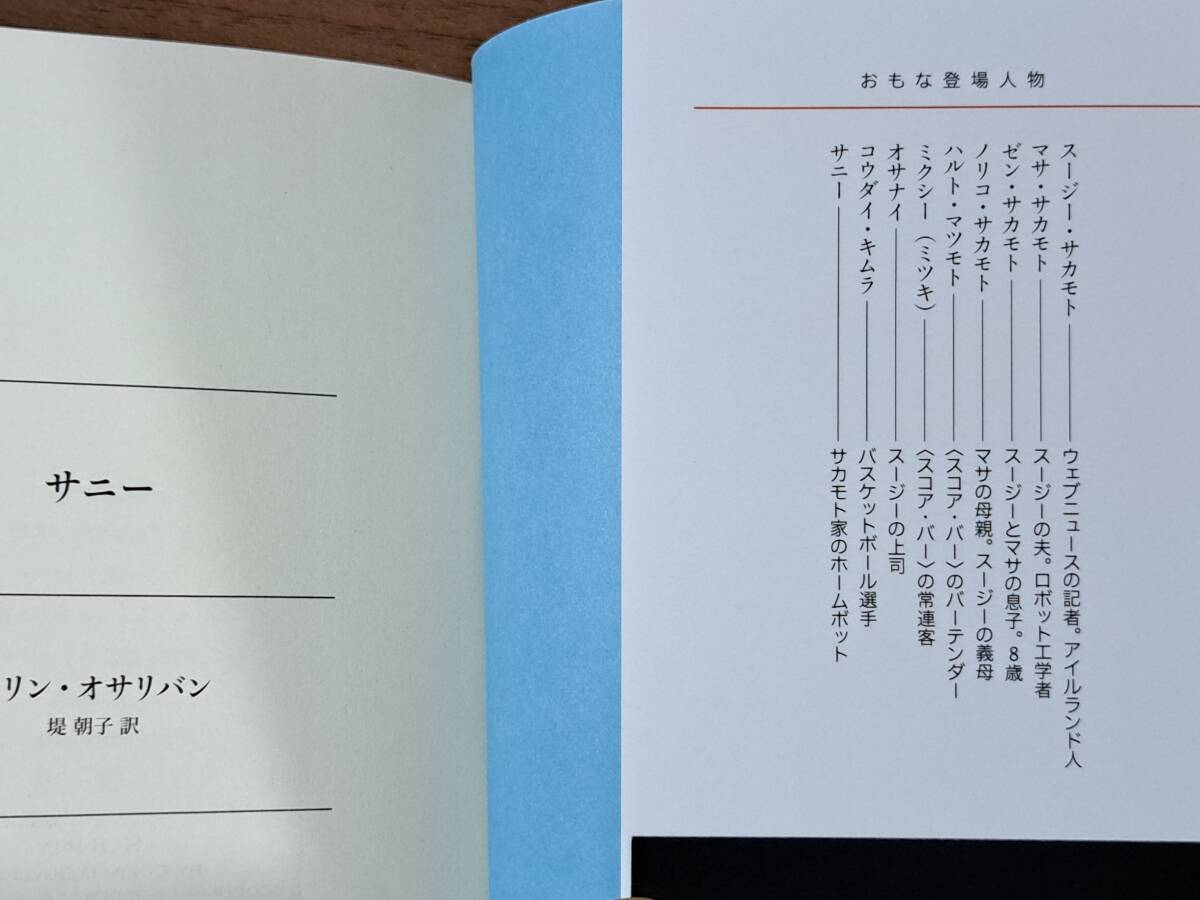 サニー
リン・オサリバン
堤 朝子 訳
おもな登場人物
スージー・サカモト――ウェブニュースの記者。アイルランド人
マサ・サカモト――スージーの夫。ロボット工学者
ゼン・サカモト――スージーとマサの息子。8歳
ノリコ・サカモト――マサの母親。スージーの義母
ハルト・マツモト――〈スコア・バー〉のバーテンダー
ミクシー（ミツキ）――〈スコア・バー〉の常連客
オサナイ――スージーの上司
コウダイ・キムラ――バスケットボール選手
サニー――サカモト家のホームボット